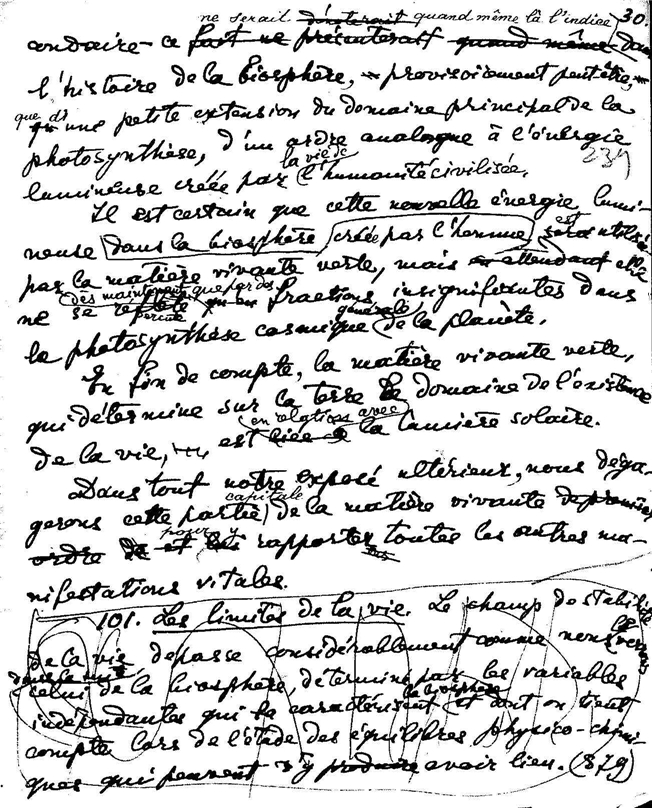 ne serait dénoterait quand même là l'indice 30.
ondaire - ce fait ne présenterait quand même dans
l'histoire de la biosphère, provisoirement peut être,
que d'une petite extension du domaine principal de la
photosynthèse, d'un ordre analogue à l'énergie
234
la vie de
lumineuse créée par l'humanité civilisée.
Il est certain que cette nouvelle énergie lumi-
neuse dans la biosphère créée par l'homme est sera utilisée
par la matière vivante verte, mais en attendant elle
dès maintenant que par des
ne se reflète fractions insignifiantes dans
générale
la photosynthèse cosmique de la planète.
En fin de compte, la matière vivante verte,
qui détermine sur la terre le domaine de l'existence
en relation avec
de la vie, est liée à la lumière solaire.
Dans tout notre exposé ultérieur, nous déga-
capitale
gerons cette partie de la matière vivante de première
pour y
ordre de et rapporter toutes les autres ma-
nifestations vitales.
101. Les limites de la vie. Le champ de stabilité
de la vie dépasse considérablement comme nous le verrons
celui de la biosphère, déterminé par les variables
la biosphère
indépendantes qui la caractérisent et dont on tient
compte lors de l'étude des équilibres physico-chimi-
ques qui peuvent s'y produire avoir lieu. (§79)